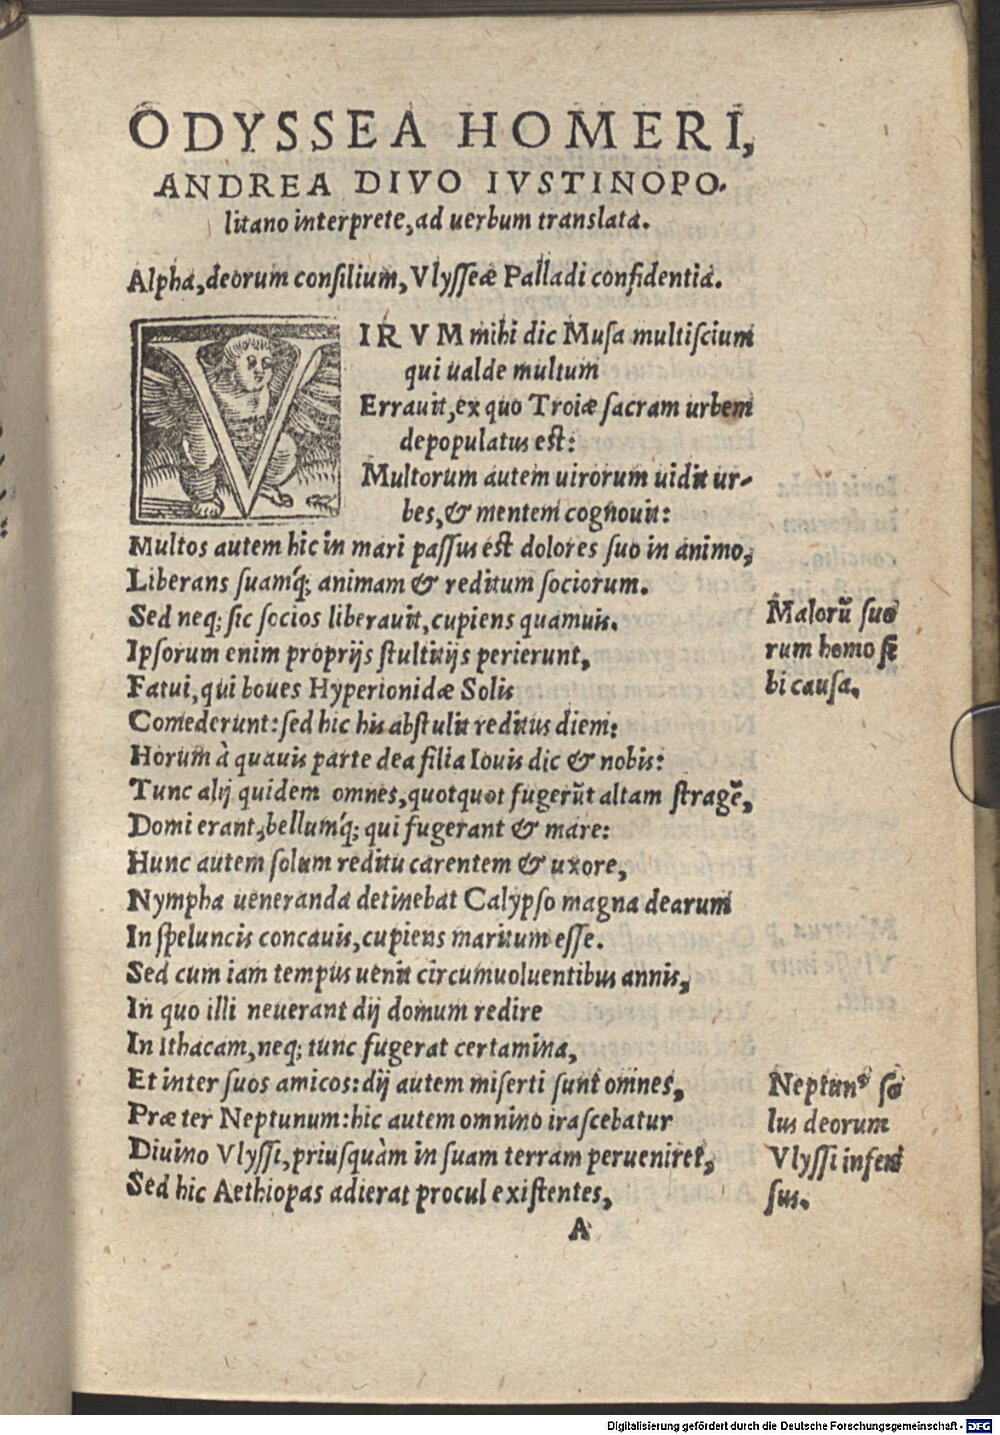 ODYSSEA HOMERI,
ANDREA DIVO IVSTINOPO.
litano interprete, ad uerbum translata.
Alpha, deorum consilium, Vlysseæ Palladi confidentia.
VIRVM mihi dic Musa multiscium
qui ualde multum
Errauit, ex quo Troiæ sacram urbem
depopulatus est:
Multorum autem uirorum uidit ur-
bes, & mentem cognouit:
Multos autem hic in mari passus est dolores suo in animo,
Liberans suamq́; animam & reditum sociorum.
Sed neq; sic socios liberauit, cupiens quamuis.
Ipsorum enim proprijs stultitijs perierunt,
Fatui, qui boues Hyperionidæ Solis
Comederunt: sed hic his abstulit reditus diem:
Horum à quauis parte dea filia Iouis dic & nobis:
Tunc alij quidem omnes, quotquot fugerūt altam stragē,
Domi erant, bellumq́; qui fugerant & mare:
Hunc autem solum reditu carentem & uxore,
Nympha ueneranda detinebat Calypso magna dearum
In speluncis concauis, cupiens maritum esse.
Sed cum iam tempus uenit circumuoluentibus annis,
In quo illi neuerant dij domum redire
In Ithacam, neq; tunc fugerat certamina,
Et inter suos amicos: dij autem miserti sunt omnes,
Præter Neptunum: hic autem omnino irascebatur
Diuino Vlyssi, priusquàm in suam terram perueniret,
Sed hic Aethiopas adierat procul existentes,
A
Malorū suo
rum homo si
bi causa.
Neptunꝰ so
lus deorum
Vlyssi infen
sus.
Digitalisierung gefördert durch die Deutsche Forschungsgemeinschaft - DFG